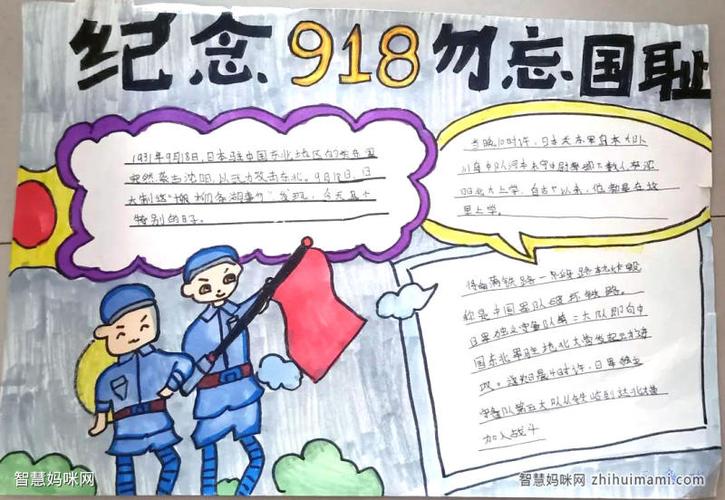 纪念918勿忘国耻
1931年9月18日,日本驻中国东北地区的关东军
突然袭击沈阳,以武力攻击东北。9月18日,日
大制造"柳条湖事件"发现,今天是个
特别的日子。
当晚10时许,日本关东军
里上学。
将南满铁路一段路轨炸毁
称是中国军队破坏铁路。
日军独立守备队第二大队即向中
国东北军驻地北大营发起
攻。 4时许,日军独立
守备队第五大队从铁岭到达北大营
加入战斗
智慧妈咪网
智慧妈咪网 zhihuimami.com